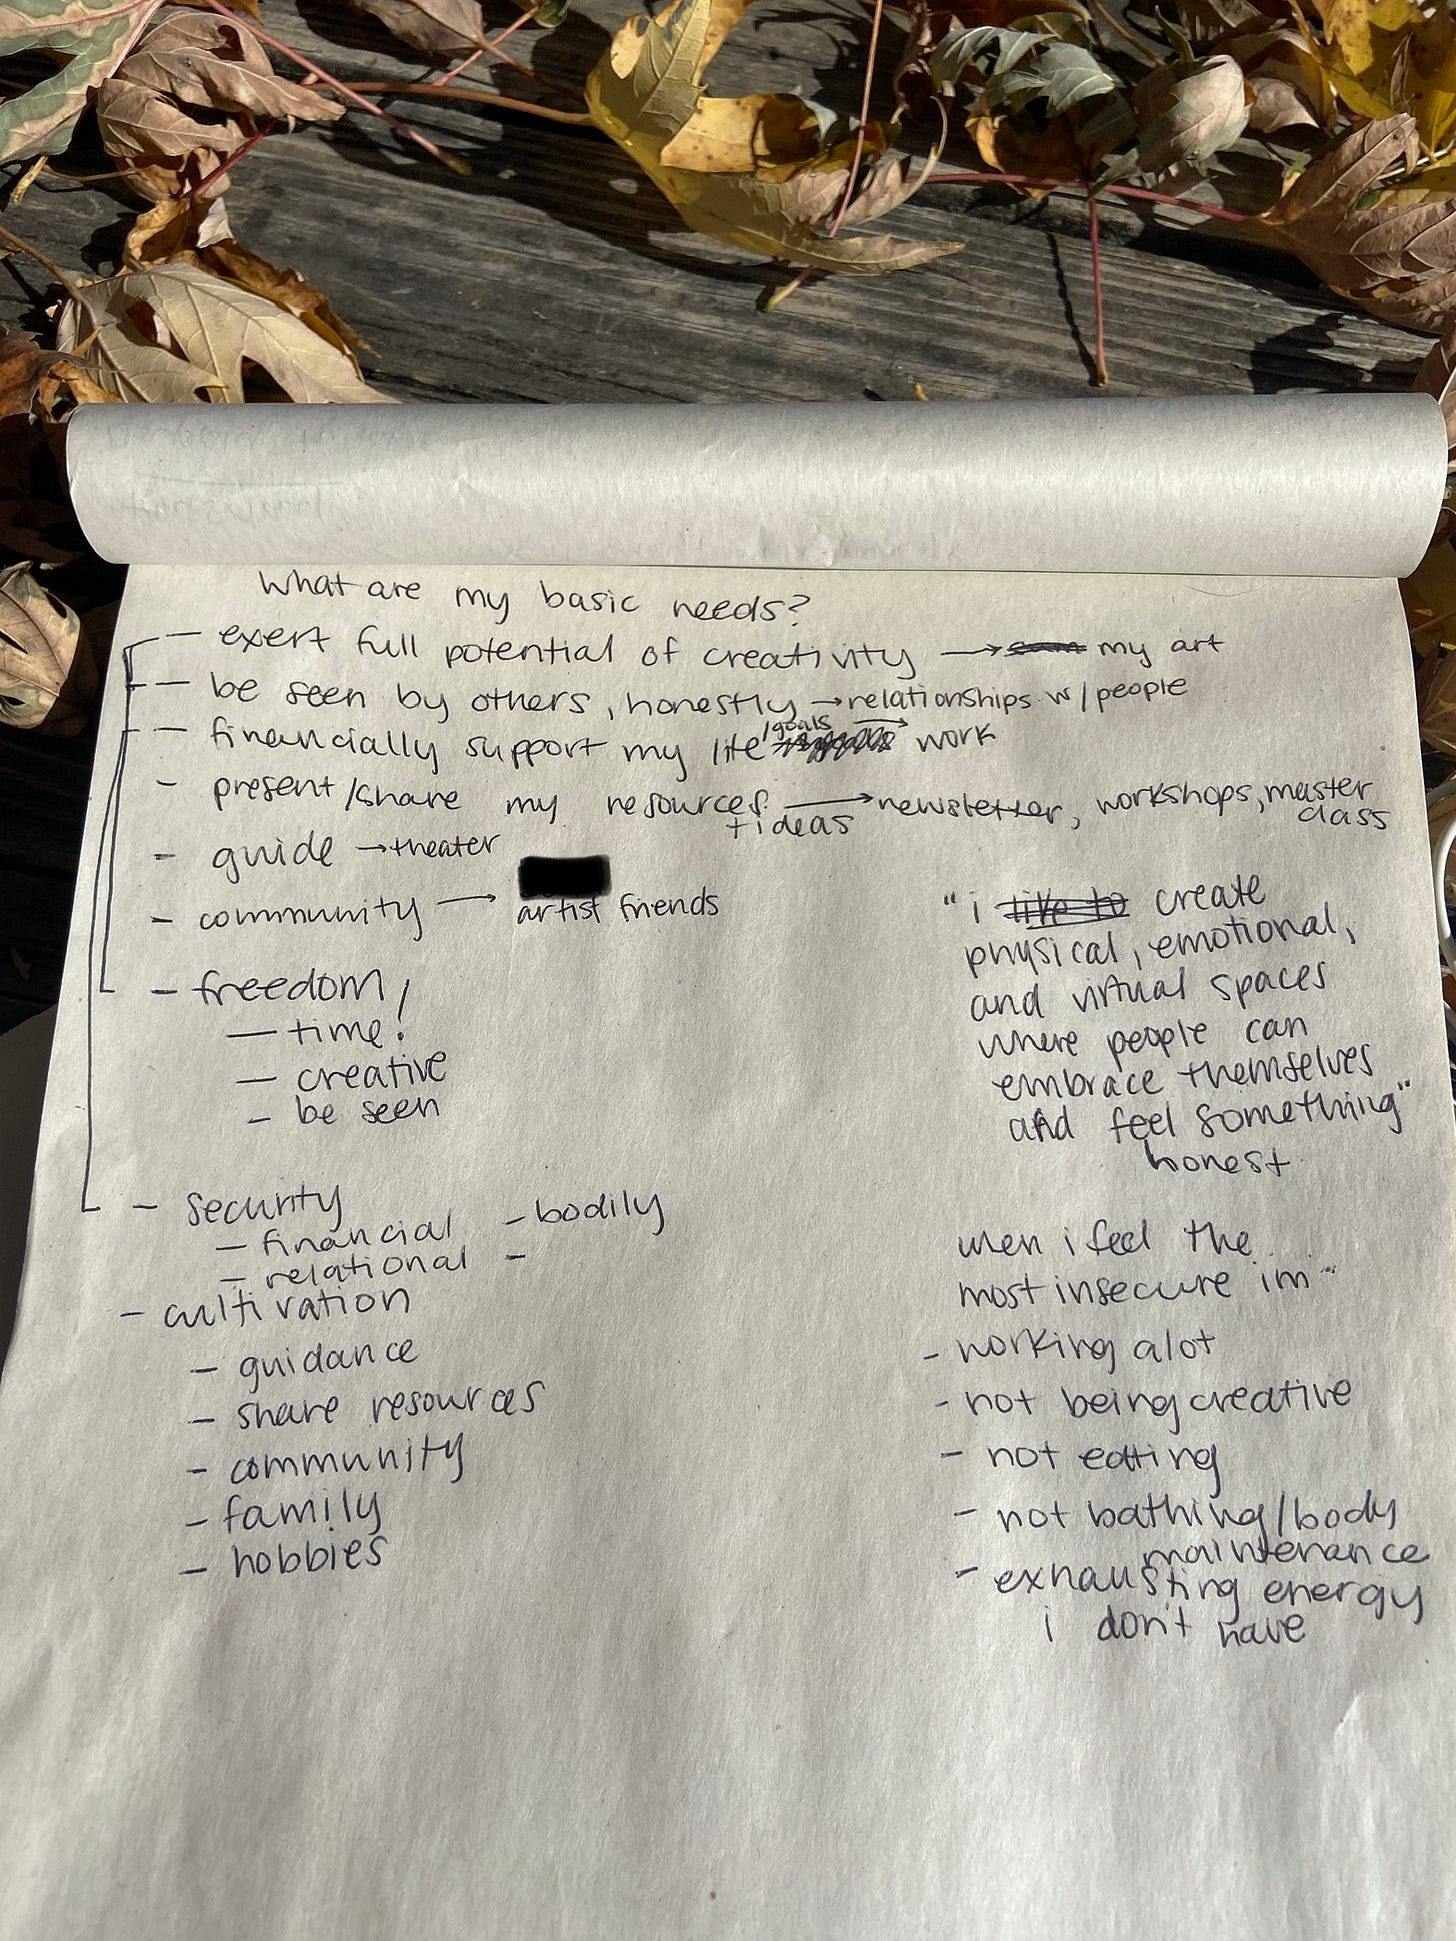 What are my basic needs?
— exert full potential of creativity → my art
— be seen by others, honestly → relationships w/people
— financially support my life /goals → work
- present/share my resources → newsletter, workshops, master class
+ ideas
- guide → theater
- community → artist friends
- freedom!
— time!
— creative
- be seen
- security
— financial
— relational
- bodily
-
- cultivation
- guidance
- share resources
- community
- family
- hobbies
"i like to create
physical, emotional,
and virtual spaces
where people can
embrace themselves
and feel something"
honest
when i feel the
most insecure im..
- working alot
- not being creative
- not eating
- not bathing/body
maintenance
- exhausting energy
i don't have